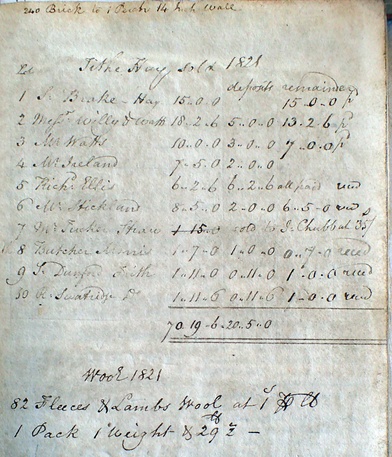 240 Brick to 1 Perch 14 Inch Wall
Tithe Hay sold 1821
deposits remainder
1 J. Brake - Hay 15..0..0 15..0..0 pd
2 Messrs Willy & Watts 18..2..6 5..0..0 13..2..6 pd
3 Mr Watts 10..0..0 3..0..0 7..0..0 pd
4 Mr Ireland 7..5..0 2..0..0
5 Richd Ellis 6..2..6 6..2..6 all paid recd
6 Mr Stickland 8..5..0 2..0..0 6..5..0 recd
7 Mr Tucker Straw sold to J. Chubb at 35/
8 Butcher 1..7..0 1..0..0 0..7..0 recd
9 J. Dunford 1..11..0 0..11..0 1..0..0 recd
10 R. Swatridge Do 1..11..6 0..11..6 1..0..0 recd
70 19..6 20..5..0
Wool 1821
82 Fleeces & Lambs Wool at 1s
1 Pack 1 Weight & 29